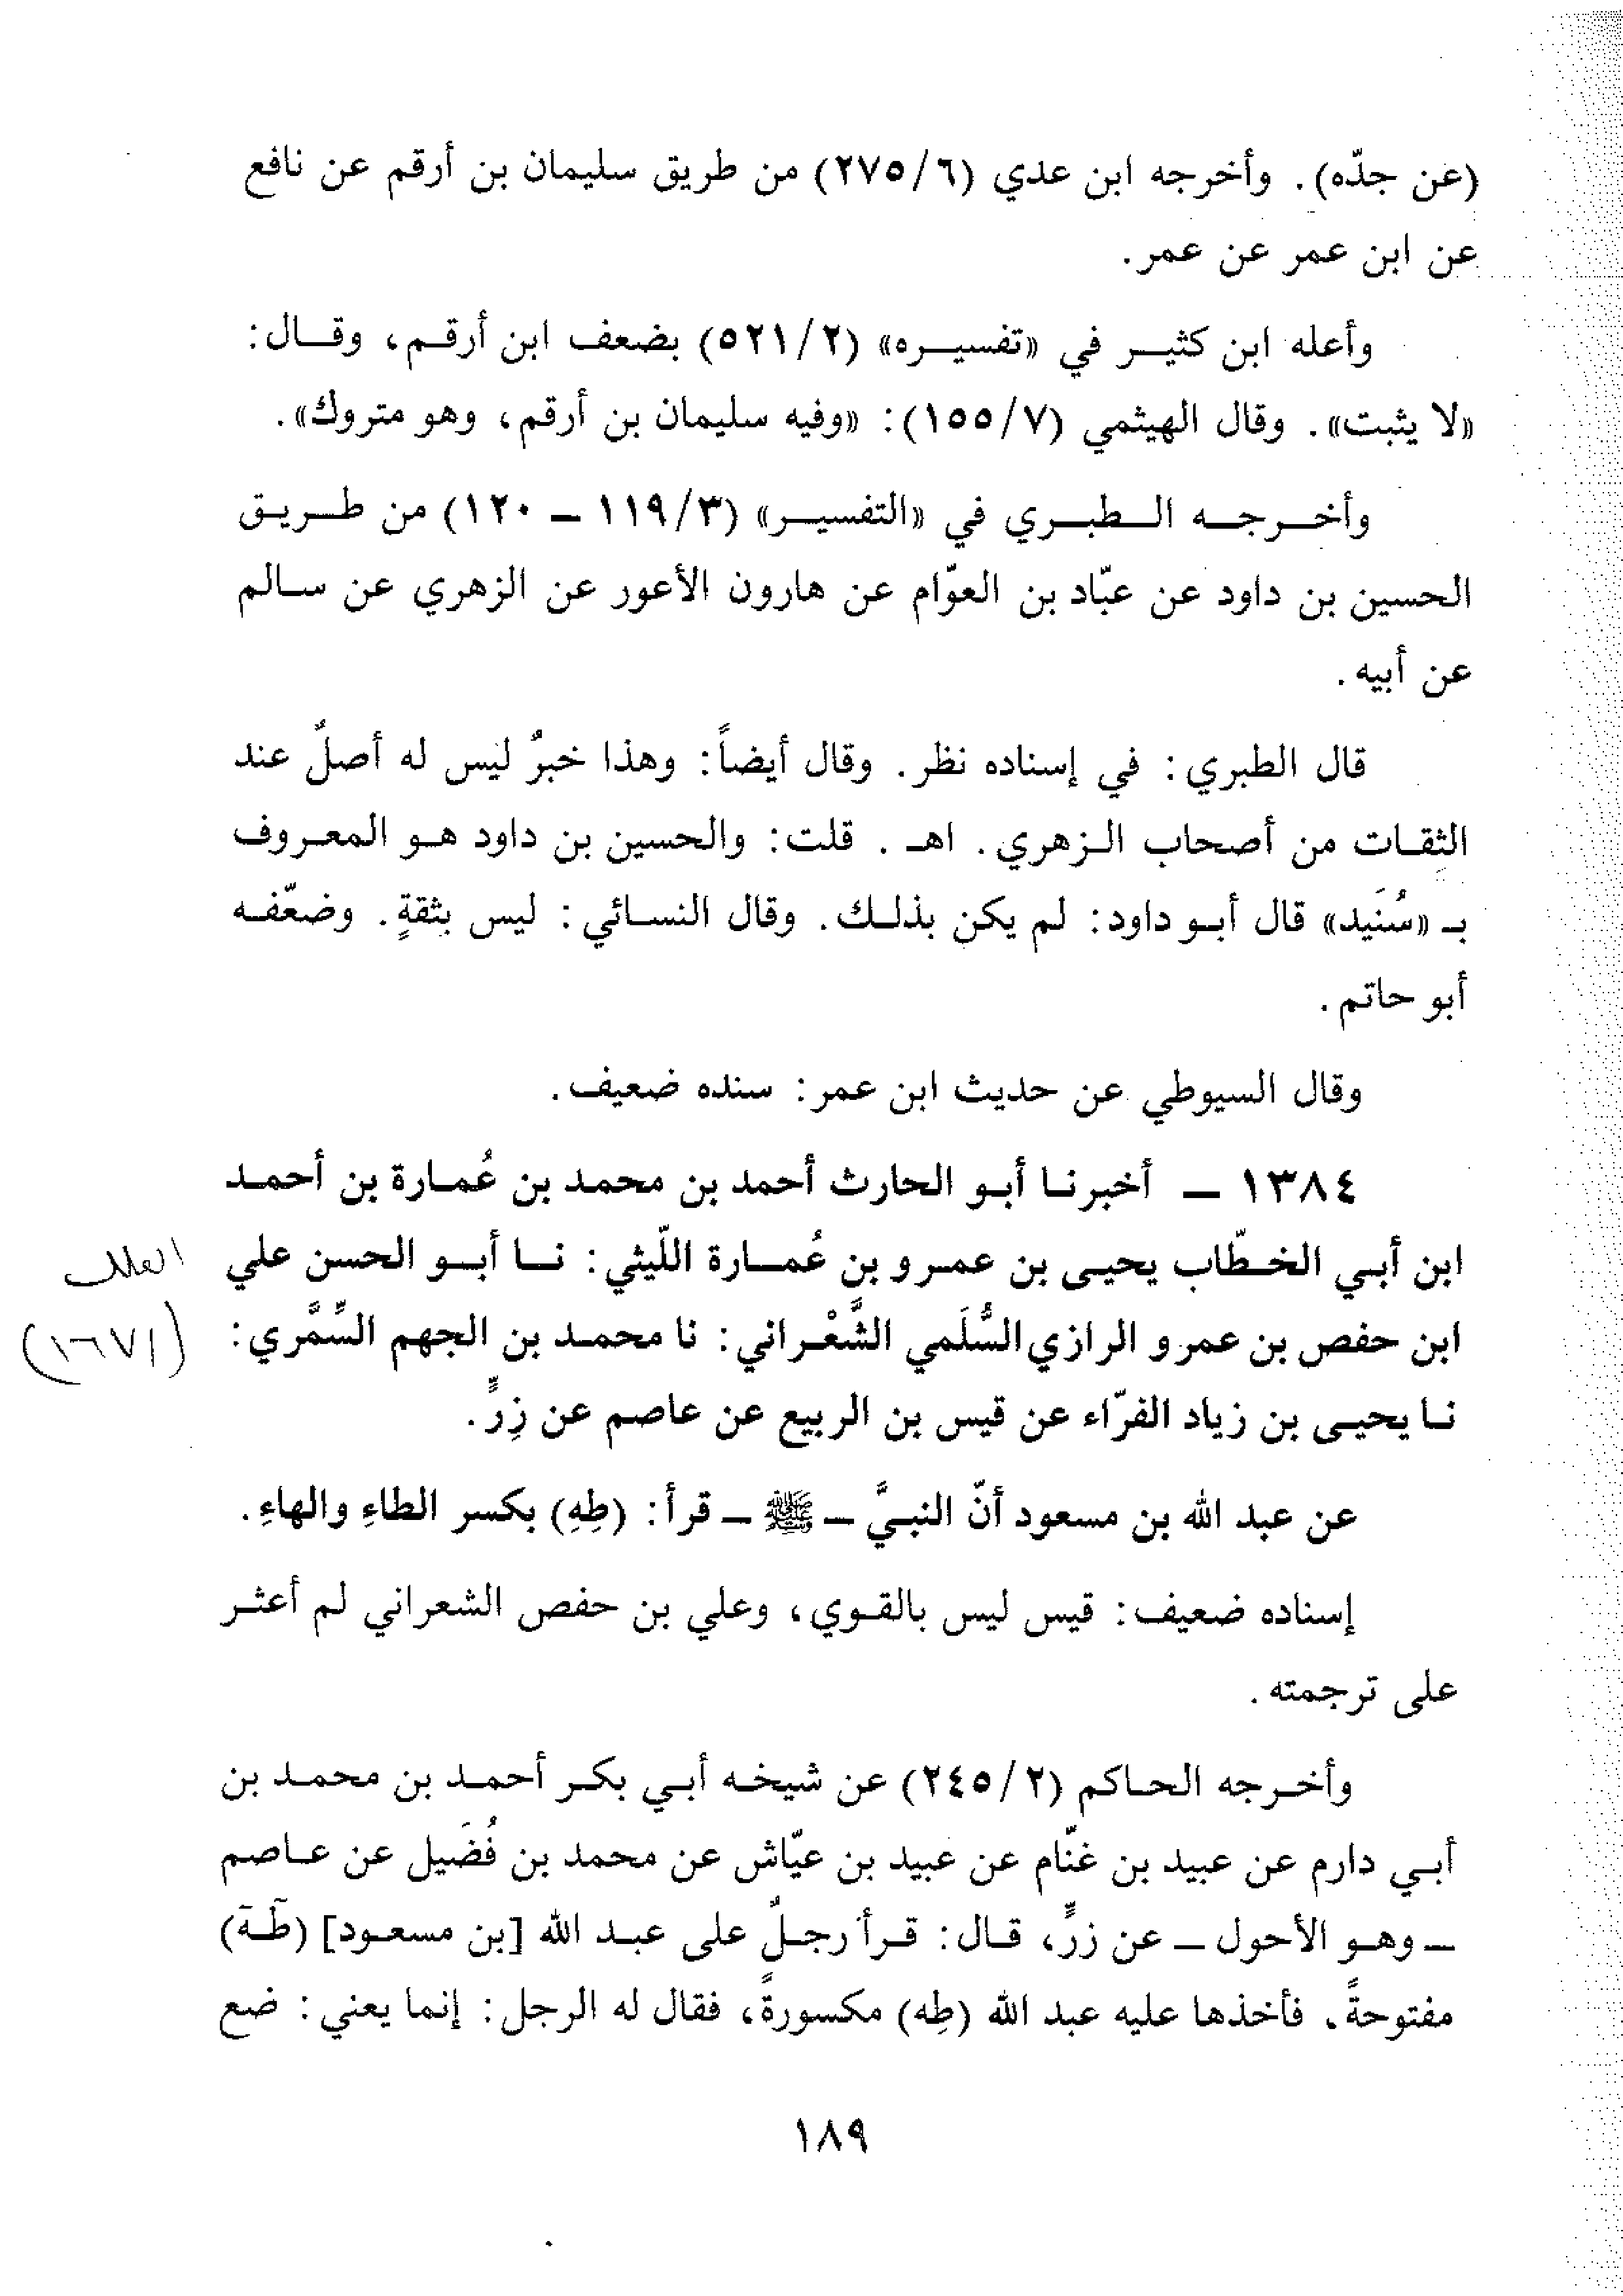 (عن جدّه). وأخرجه ابن عدي (٢٧٥/٦) من طريق سليمان بن أرقم عن نافع
عن ابن عمر عن عمر.
وأعله ابن كثير في «تفسيره» (٥٢١/٢) بضعف ابن أرقم، وقال:
«لا يثبت». وقال الهيثمي (١٥٥/٧): «وفيه سليمان بن أرقم، وهو متروك».
وأخرجه الطبري في «التفسير» (١١٩/٣ – ١٢٠) من طريق
الحسين بن داود عن عبّاد بن العوّام عن هارون الأعور عن الزهري عن سالم
عن أبيه.
قال الطبري: في إسناده نظر. وقال أيضاً: وهذا خبرٌ ليس له أصلٌ عند
الثِقات من أصحاب الزهري. اهـ. قلت: والحسين بن داود هو المعروف
بـ «سُنَيد» قال أبو داود: لم يكن بذلك. وقال النسائي: ليس بثقةٍ. وضعّفه
أبو حاتم.
وقال السيوطي عن حديث ابن عمر: سنده ضعيف.
١٣٨٤ – أخبرنا أبو الحارث أحمد بن محمد بن عُمارة بن أحمد
ابن أبي الخطّاب يحيى بن عمرو بن عُمارة اللّيثي: نا أبو الحسن علي
ابن حفص بن عمرو الرازي السُّلَمي الشَّعْراني: نا محمد بن الجهم السِّمَّري:
(١٦٧١)
نا يحيى بن زياد الفرّاء عن قيس بن الربيع عن عاصم عن زِرٍّ.
عن عبد الله بن مسعود أنّ النبيَّ – ﷺ – قرأ: (طِهِ) بكسر الطاءِ والهاءِ.
إسناده ضعيف: قيس ليس بالقوي، وعلي بن حفص الشعراني لم أعثر
على ترجمته.
وأخرجه الحاكم (٢٤٥/٢) عن شيخه أبي بكر أحمد بن محمد بن
أبي دارم عن عبيد بن غنّام عن عبيد بن عيّاش عن محمد بن فُضَيل عن عاصم
– وهو الأحول – عن زرٍّ، قال: قرأ رجلٌ على عبد الله [بن مسعود] (طَهَ)
مفتوحةً، فأخذها عليه عبد الله (طِه) مكسورةً، فقال له الرجل: إنما يعني: ضع
١٨٩